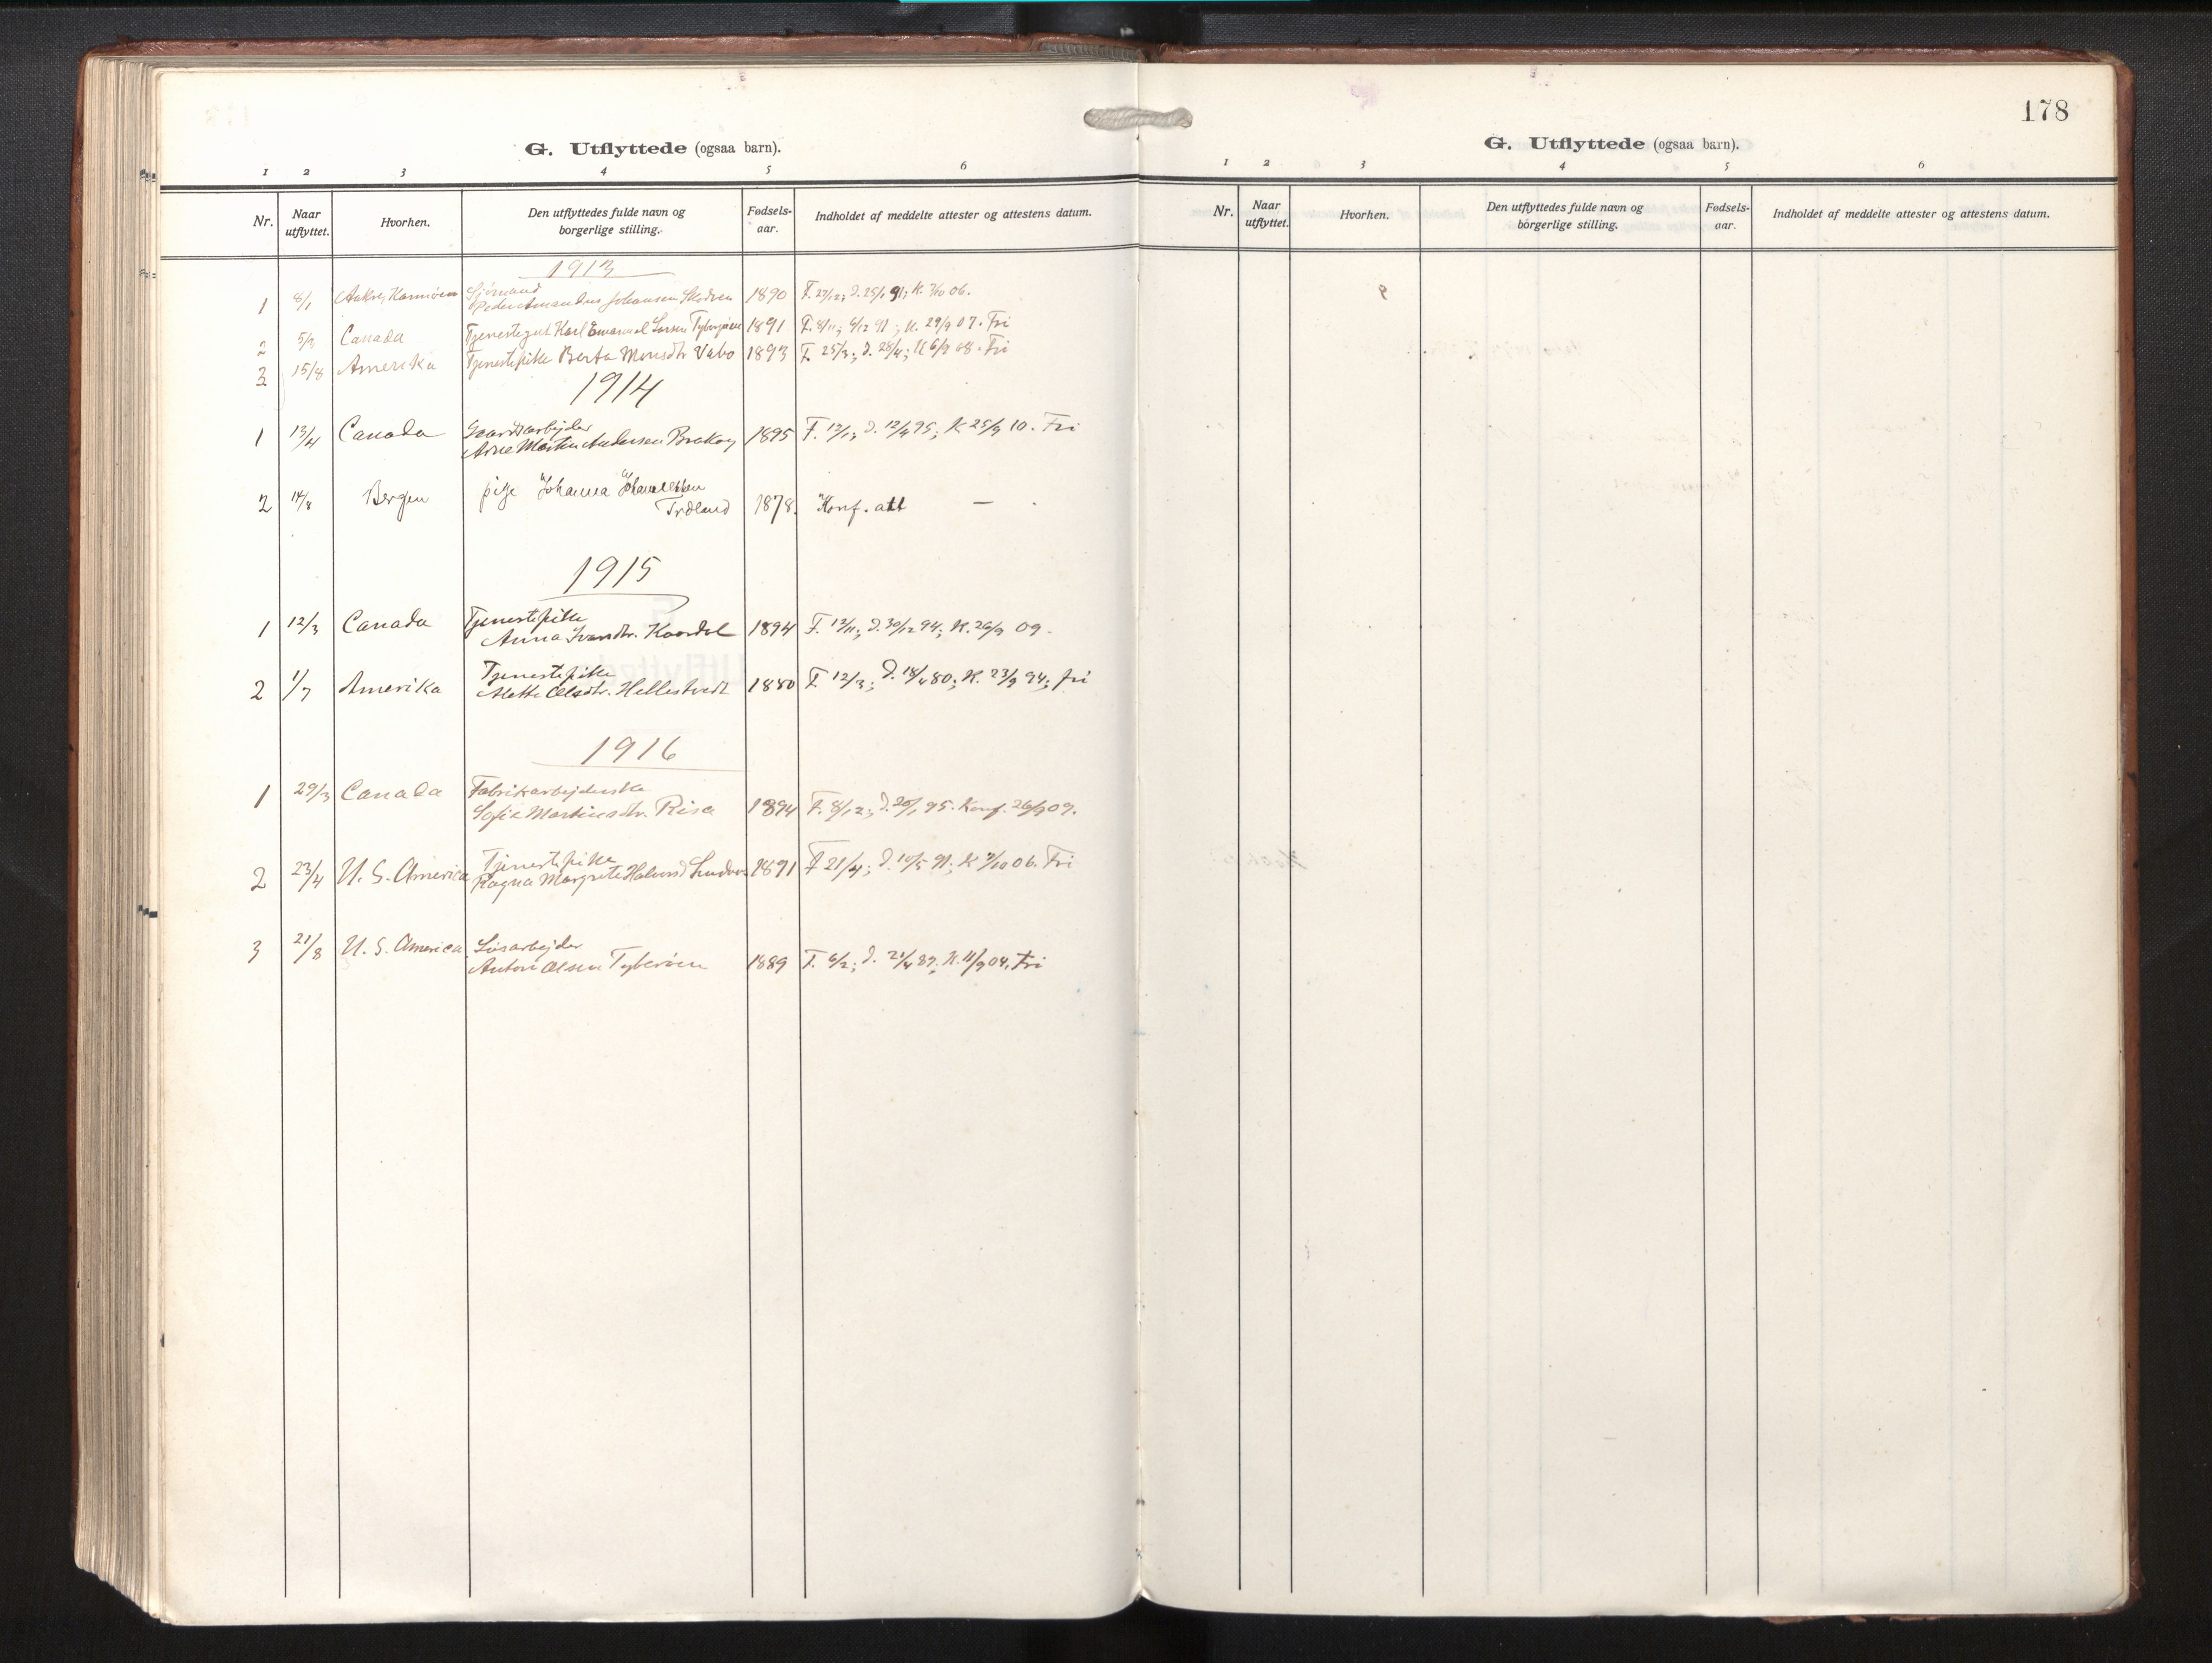 178
G. Utflyttede (ogsaa barn).
1 2 3 4 5 6
Nr. Naar utflyttet. Hvorhen. Den utflyttedes fulde navn og borgerlige stilling. Fødsels-aar. Indholdet af meddelte attester og attestens datum.
1913
1 8/1 Sjømand
Johansen 1890 F. 27/12; D. 25/1 91; K. 06.
2 5/3 Canada Tjenestegut Karl Emanuel Larsen 1891 F. 8/11; 6/12 91; K. 29/9 07. Fri
3 15/8 Amerika Tjenestepike Berta Monsdtr. Vabo 1893 F. 25/3; D. 28/4; K 6/9 08. Fri
1914
1 13/4 Canada Gaardsarbejder
Arne Martin Andersen 1895 F. D. 12/4 95; K 25/9 10. Fri
2 14/8 Bergen pige Johanna
1878. Konf. att —
1915
1 12/3 Canada Tjenestepike
Anna 1894 F. 12/11; D. 30/12 94; K. 26/9 09.
2 1/7 Amerika Tjenestepike
Mette Olsdtr. Hellestvedt 1880 F. 12/3; D. 18/4 80; K. 23/9 94; fri
1916
1 29/3 Canada Fabrikarbejderske
Sofie Martinsdtr. Risa 1894 F. 8/12; D. 20/1 95. Konf. 26/9 09.
2 23/4 U. S. America Tjenestepike
Ragna Margrete 1891 F 21/4; D. 10/5 91; K 7/10 06. Fri
3 21/8 U. S. America Løsarbejder
Anton Olsen 1889 F. 6/2; D. 21/4 89; K. 11/9 04. Fri
G. Utflyttede (ogsaa barn).
1 2 3 4 5 6
Nr. Naar utflyttet. Hvorhen. Den utflyttedes fulde navn og borgerlige stilling. Fødsels-aar. Indholdet af meddelte attester og attestens datum.